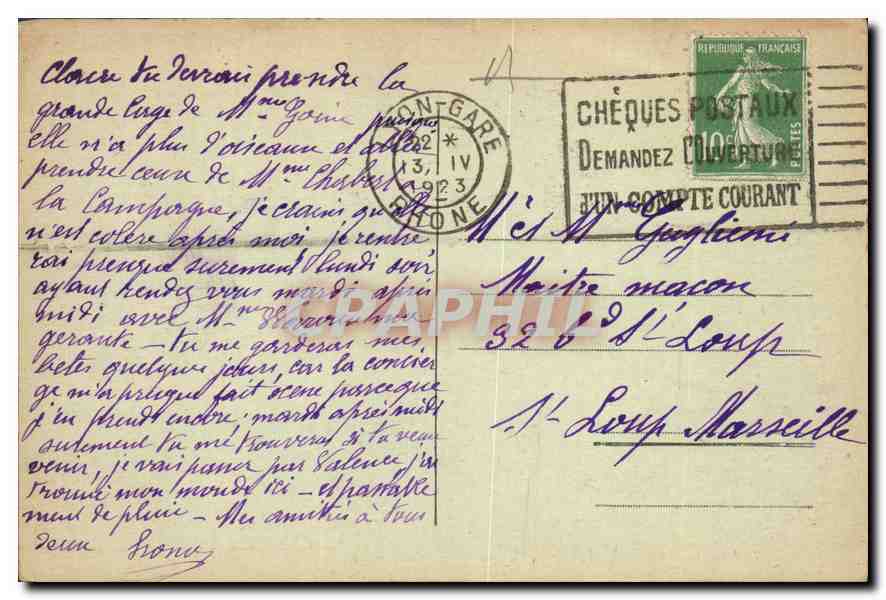 Claire tu devrais prendre la
grande cage de Mme Goine puisque
elle n'a plus d'oiseaux et aller
prendre ceux de Mme Chabert
la Campagne, je crains qu'elle
n'est colère après moi, je rentre
rai presque surement lundi soir
ayant rendez vous mardi après
midi avec Mme ma
gerante - tu me garderas mes
betes quelques jours, car la concier
ge m'a presque fait scene parceque
j'en prends encore, mardi après midi
surement tu me trouveras si tu veux
venir, je vais passer par Valence j'ai
trouvé mon monde ici - et passable
ment de pluie - Mes amitiés à tous
deux
LYON-GARE
22 *
13, IV
1923
RHÔNE
CHÈQUES POSTAUX
DEMANDEZ L'OUVERTURE
d'UN COMPTE COURANT
REPUBLIQUE FRANÇAISE
10c
POSTES
Mr et Mme Guglielmi
Maitre maçon
32 bd St Loup
St Loup Marseille
CPAPHIL